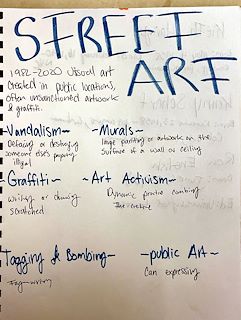 STREET
ART
1982-2020 Visual art
created in public locations,
often unsanctioned artwork
& graffiti.
Vandalism~
Defacing or destroying
someone elses property
illegal
~Murals~
large painting or artwork on the
surface of a wall or ceiling
~Graffiti~
writing or drawing
scratched
~Art Activism~
Dynamic practice combing
the creative
Tagging & Bombing~
Tag-writing
~public Art~
Can expressing